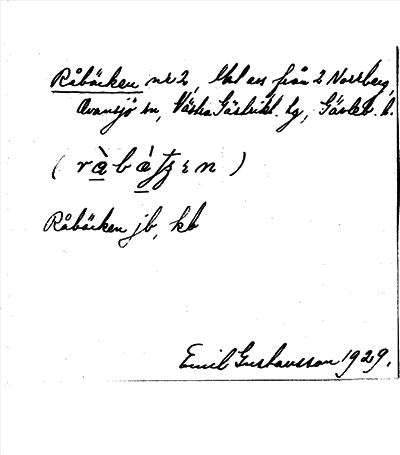 Råbäcken nr 2, Utl avs från 2 Norrberg,
Ovansjö sn, Västra Gästrikl. hg, Gävleb. l.
(ràbátʃɛn)
Råbäcken jb, kb
Emil Gustavsson 1929.